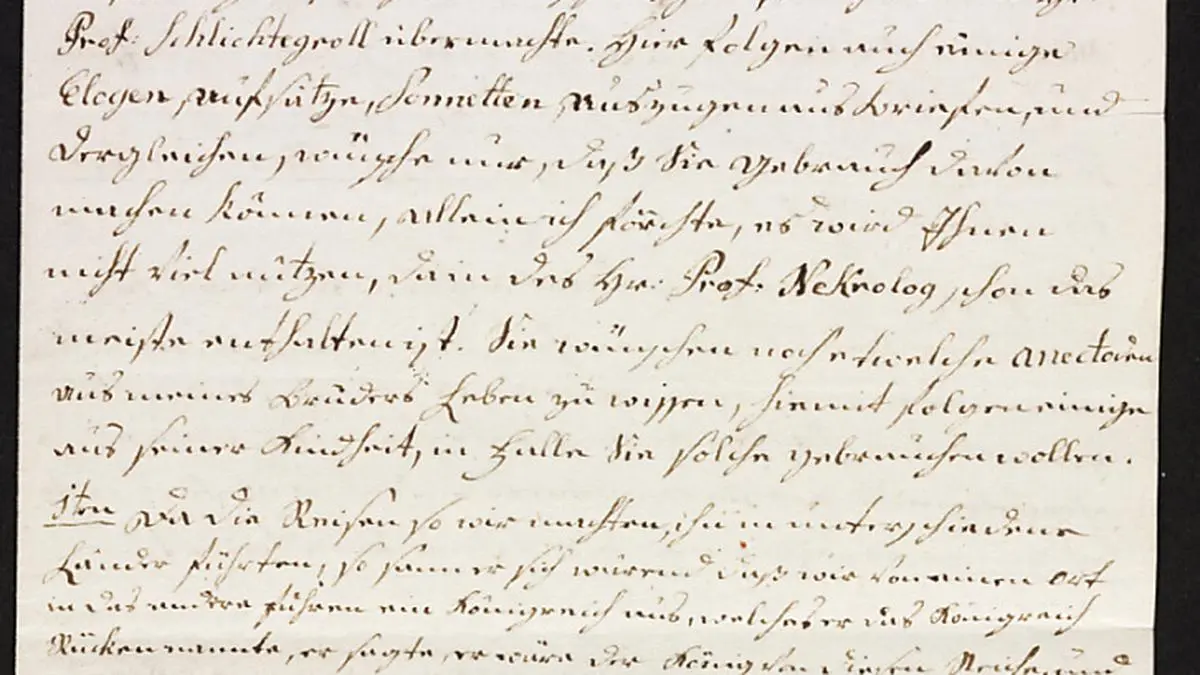 Prof: Schlichtegroll übermachte. Hier folgen auch einige
Elogen, Aufsätze, Sonnetten Auszugen aus Briefen, und
dergleichen, wünsche nur, daß Sie gebrauch davon
machen können, allein ich förchte, es wird Ihnen
nicht viel nützen, da in des Hr: Prof: Nekrolog schon das
meiste enthalten ist. Sie wünschen noch etwelche Anectoden
aus meines Bruders Leben zu wissen, hiemit folgen einige
aus seiner Kindheit, in Falle Sie solche gebrauchen wollen.
1ten Da die Reisen so wir machten, ihn in unterschiedene
Länder führten, so sann er sich, wärend daß wir von einen Ort
in das andere führen ein Königreich aus, welches er das Königreich
Rücken nannte, er sagte, er wäre der König von diesen Reiche, und